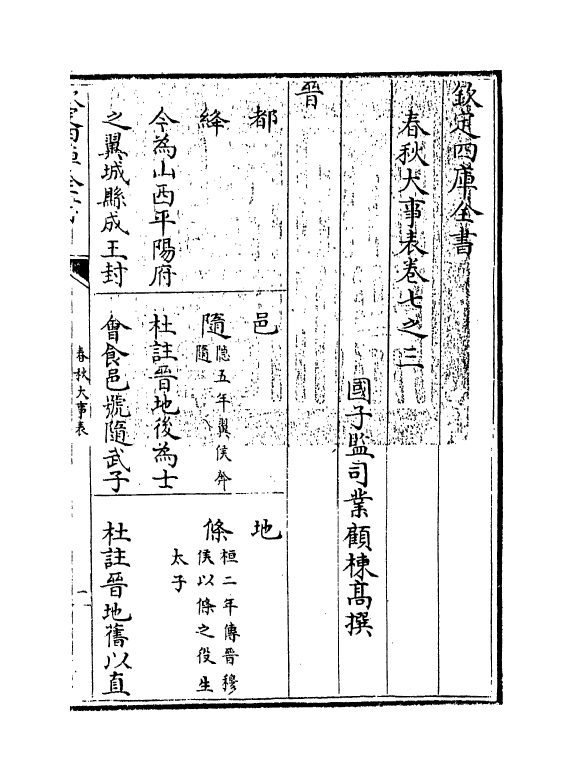 欽定四庫全書
春秋大事表卷七之三
國子監司業顧棟高撰
晉
都
絳
今為山西平陽府
之翼城縣成王封
邑
隨隱五年翼侯奔
隨
杜註晉地後為士
會食邑號隨武子
地
條桓二年傳晉穆
侯以條之役生
太子
杜註晉地舊以直
春秋大事表
一